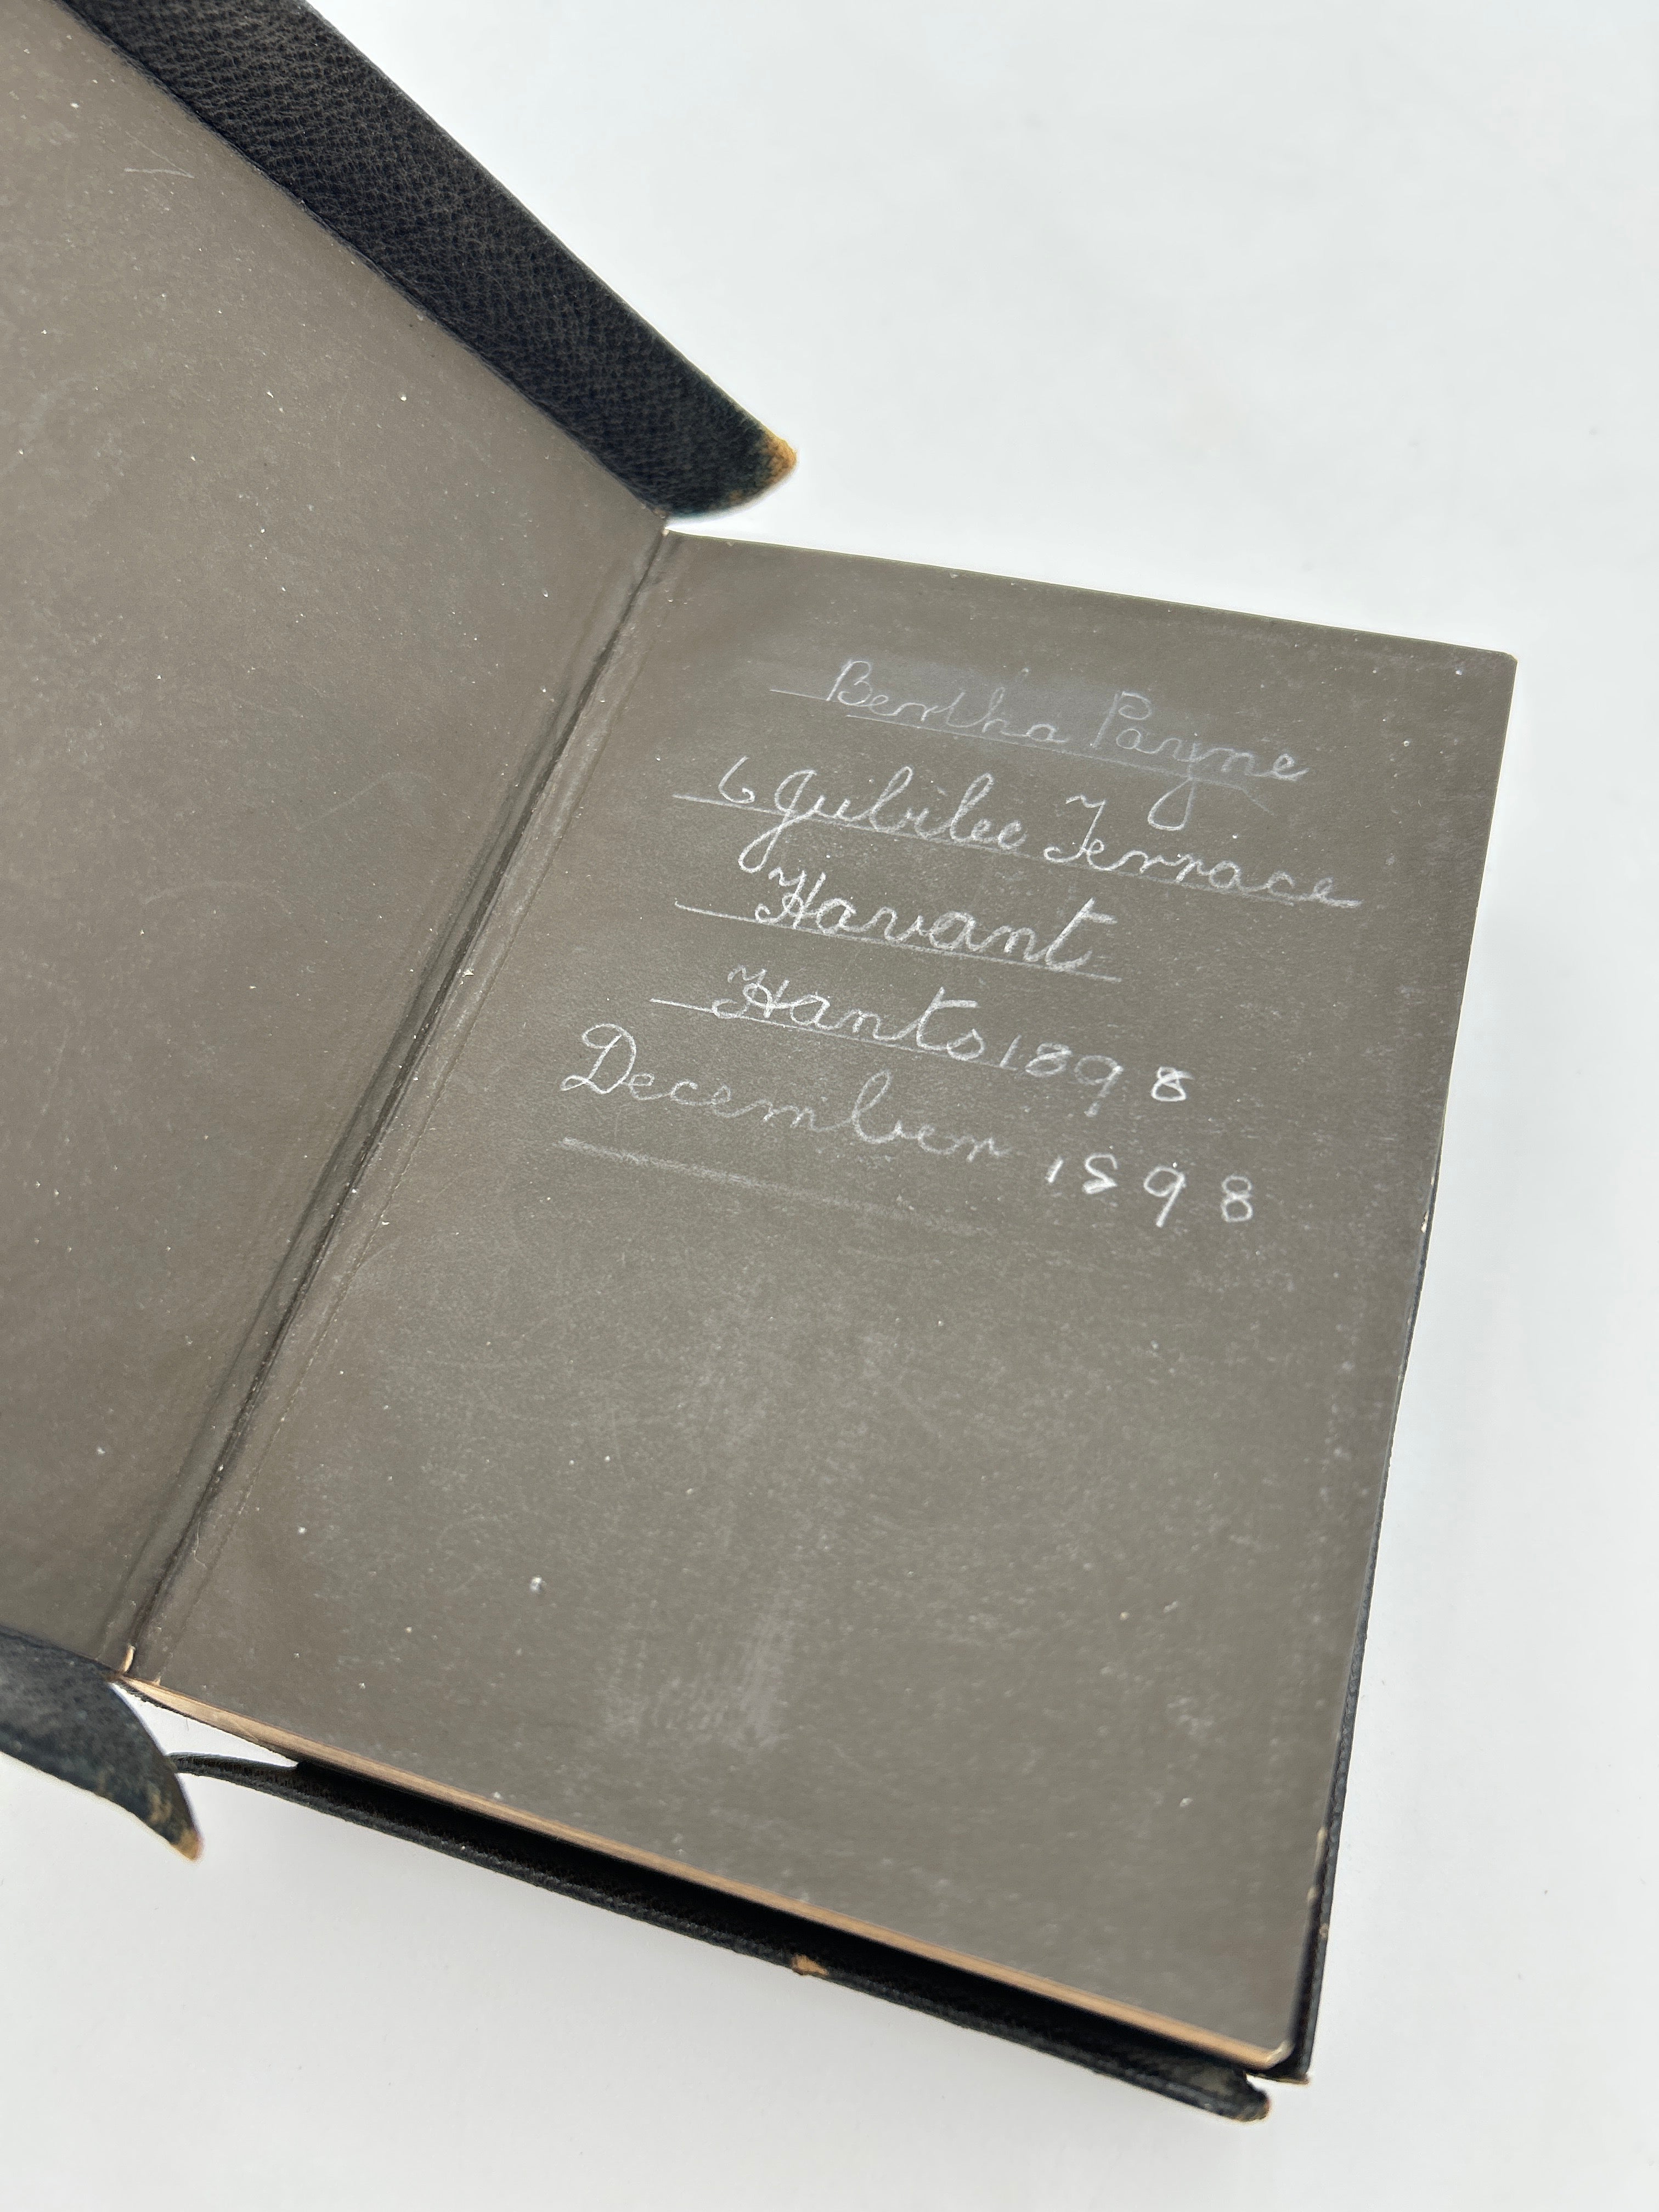 Bertha Payne
6 Jubilee Terrace
Havant
Hants 1898
December 1898